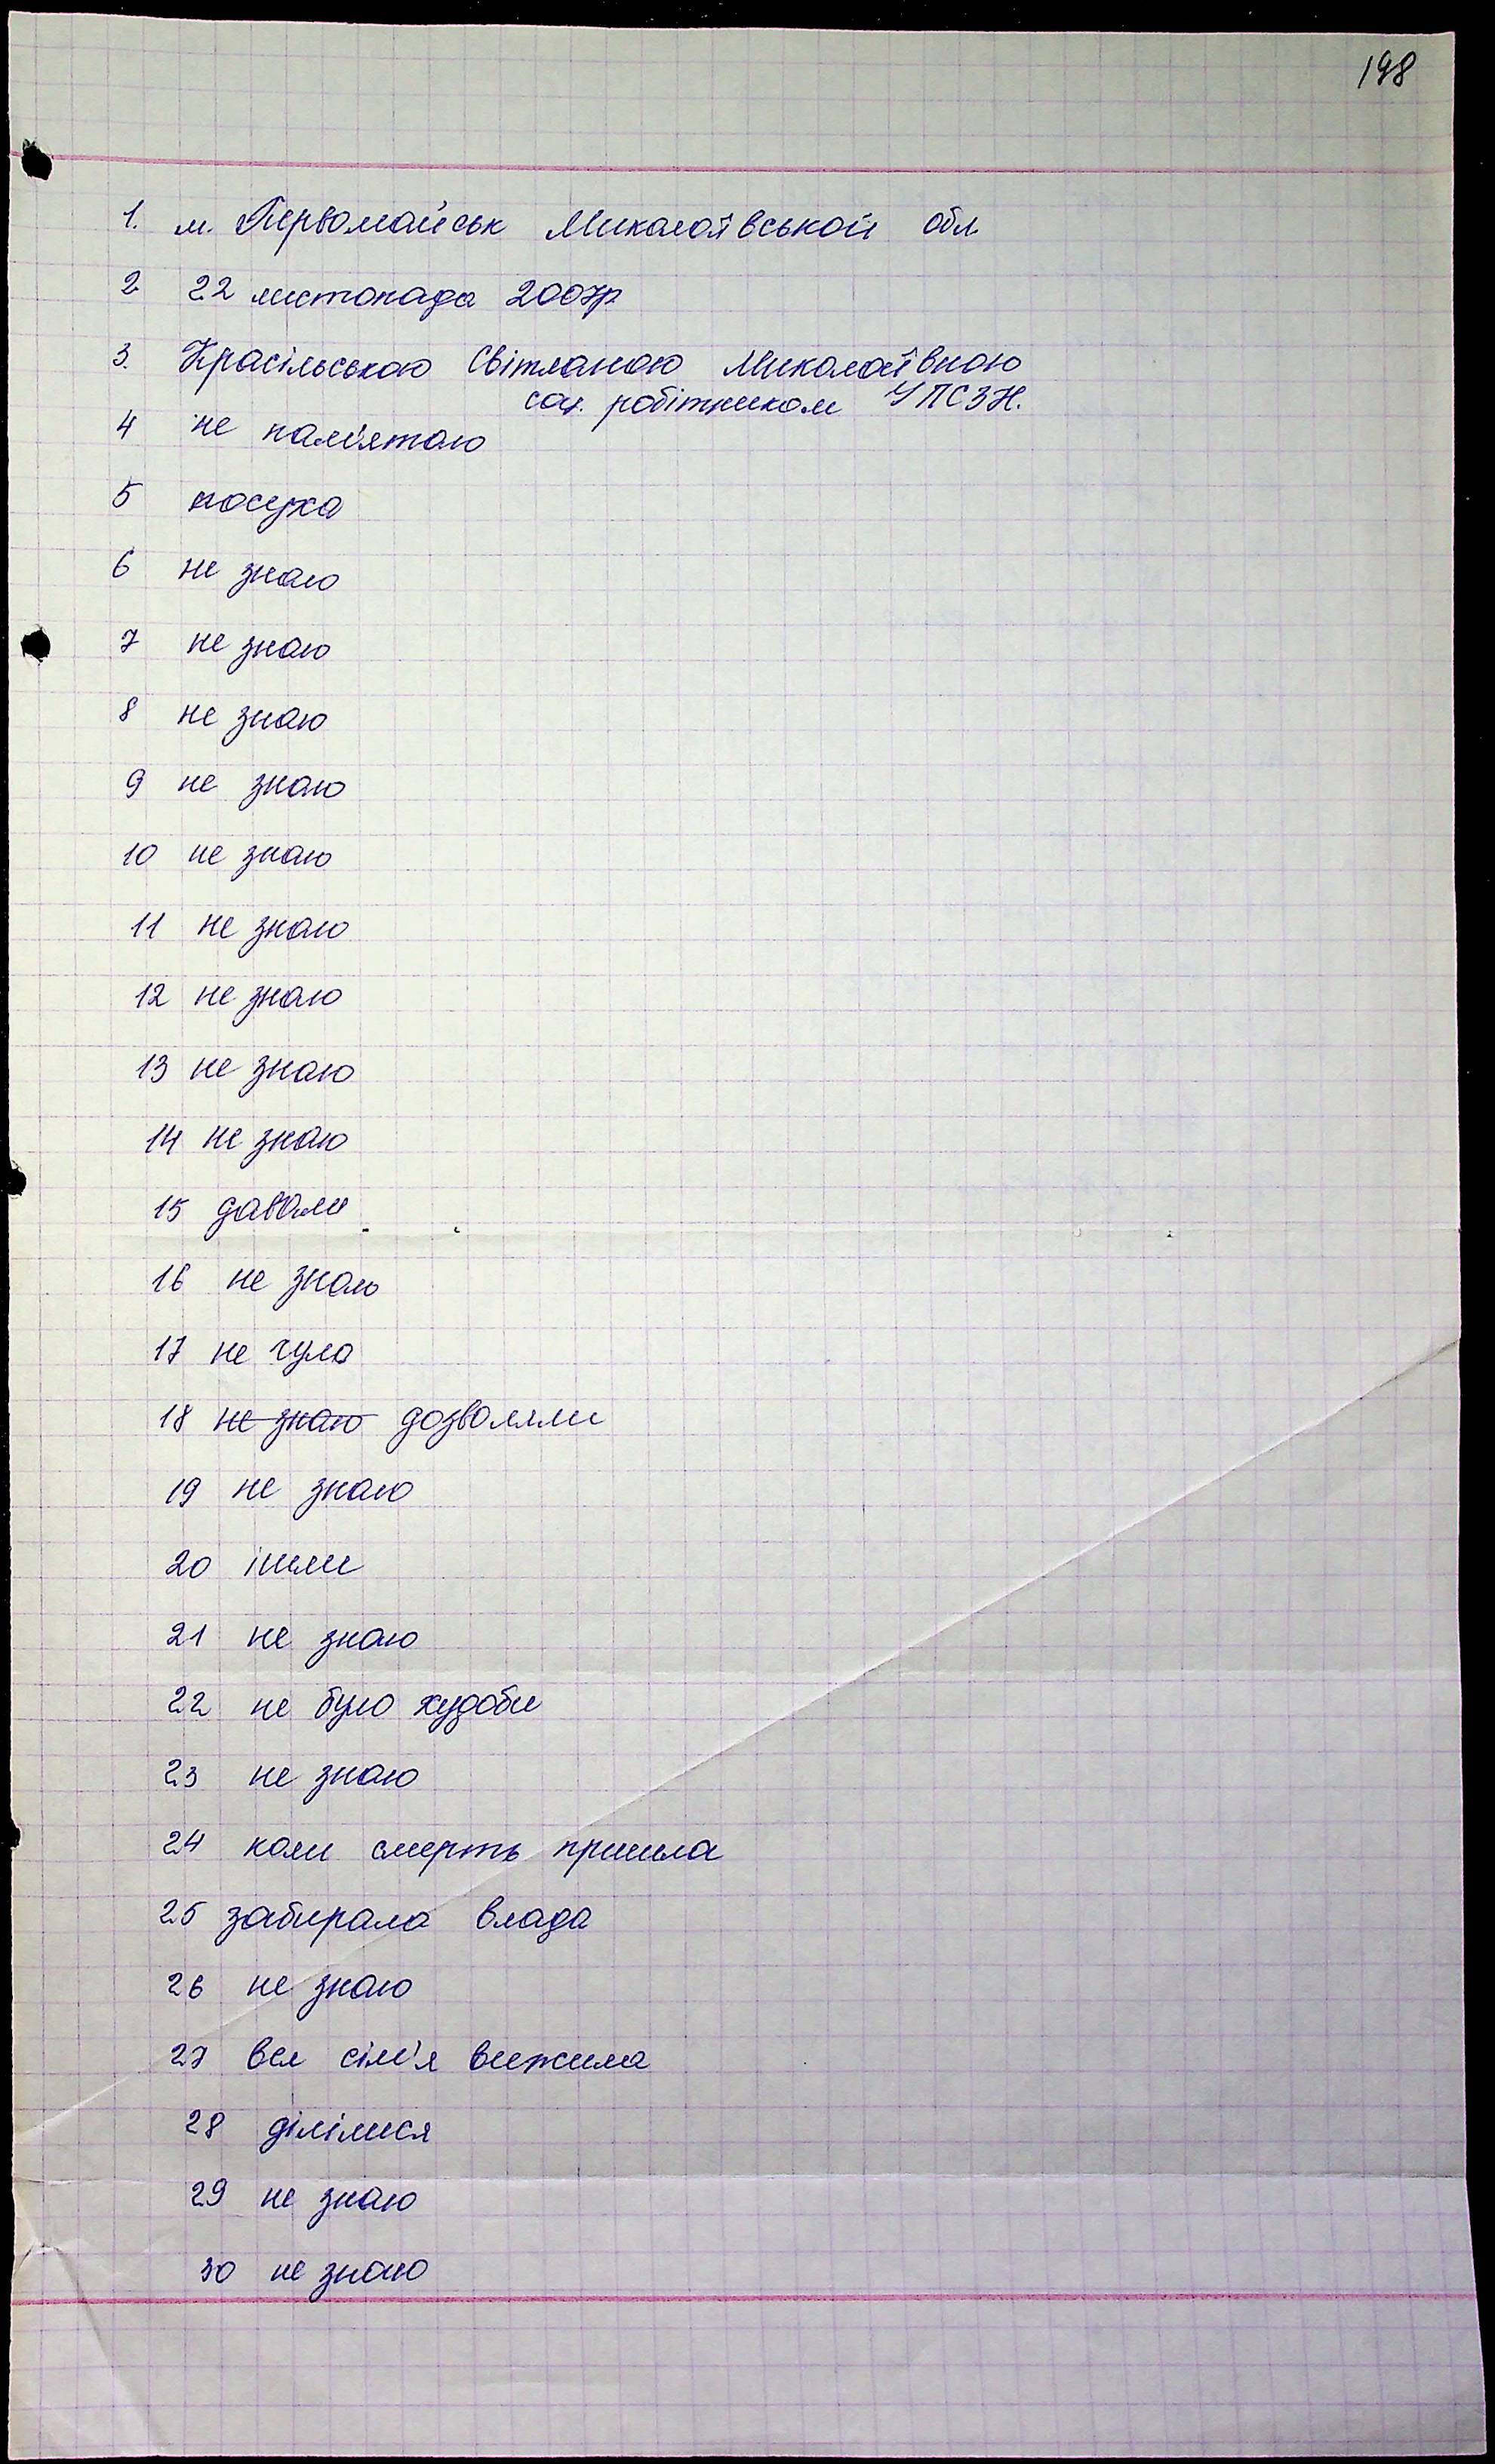 198
1. м. Первомайськ Миколаївськой обл
2 22 листопада 2007р
3. Красільською Світланою Миколаївною
соц. робітником УПСЗН.
4 не пам'ятаю
5 посуха
6 не знаю
7 не знаю
8 не знаю
9 не знаю
10 не знаю
11 не знаю
12 не знаю
13 не знаю
14 не знаю
15 давали
16 не знаю
17 не чула
18 не знаю дозволяли
19 не знаю
20 ішли
21 не знаю
22 не було худоби
23 не знаю
24 коли смерть пришла
25 забирала влада
26 не знаю
27 вся сім'я вижила
28 ділілися
29 не знаю
30 не знаю